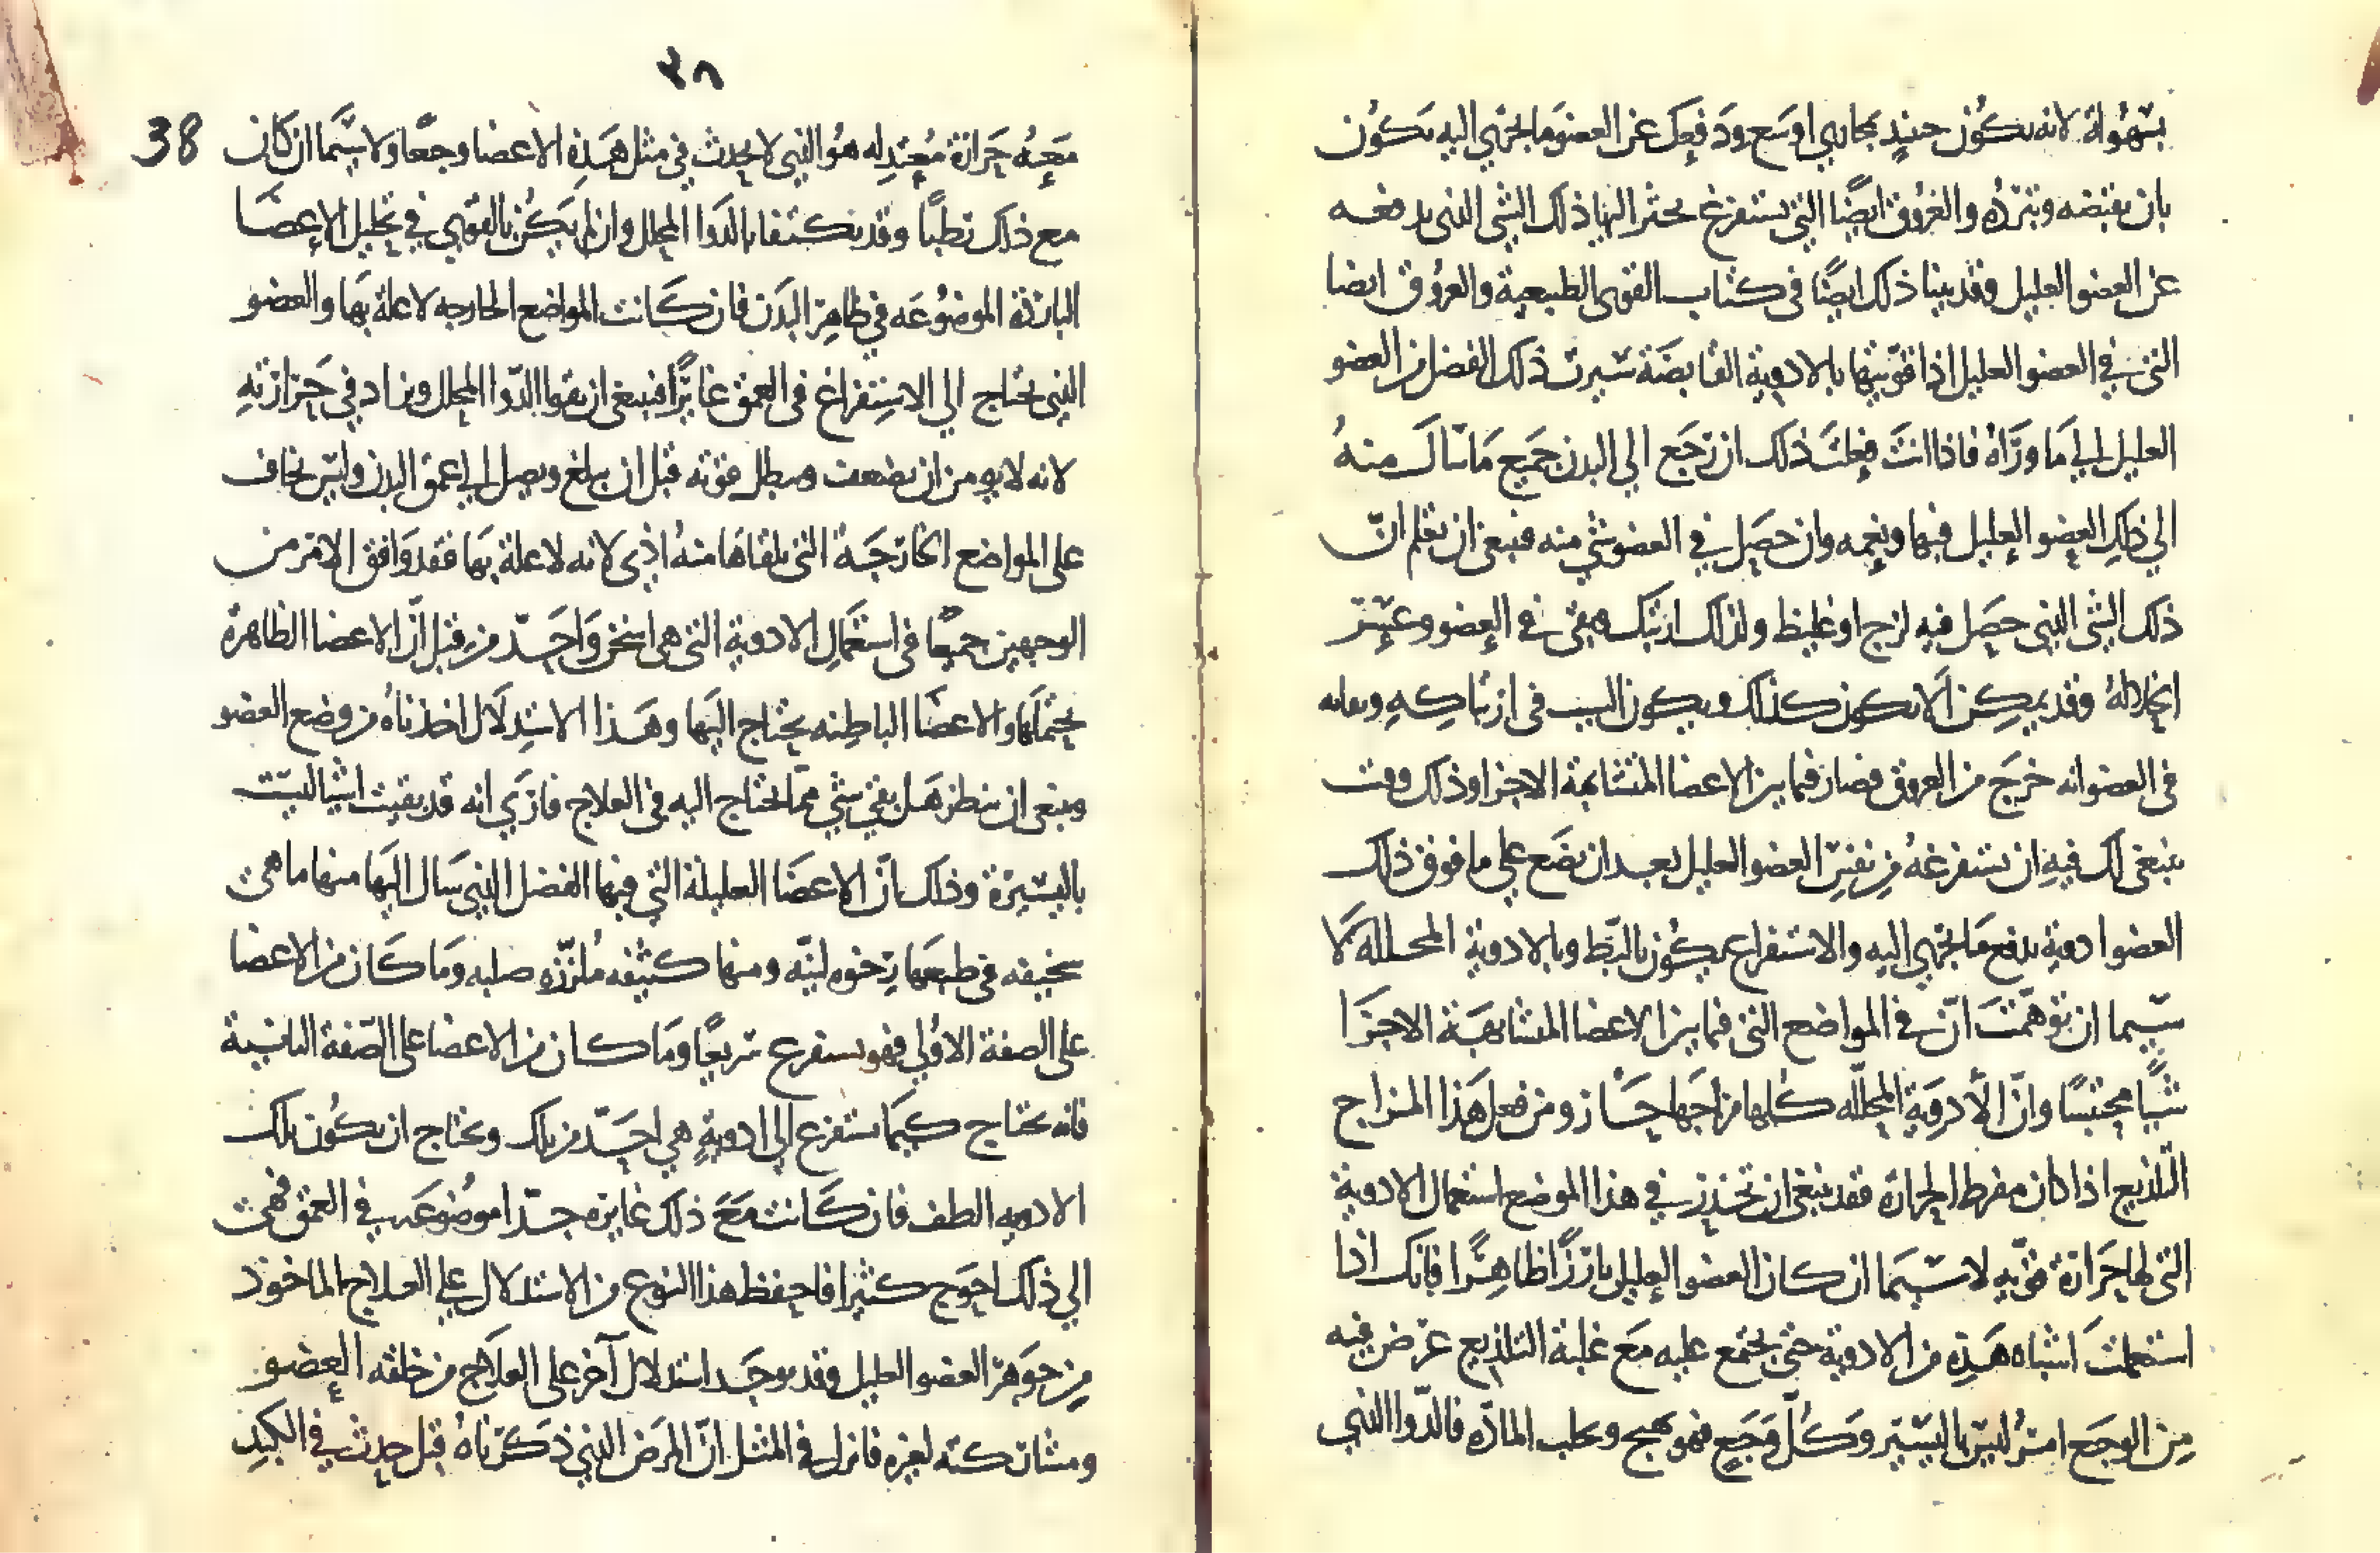 بسهولة لانه يكون حينئذ مجاري اوسع ودفعك عن العضو ما يجري اليه يكون
بان تقبضه وتبرده والعروق ايضًا التي تستفرغ يجتر اليها ذلك الشي الذي يدفعه
عن العضو العليل وقد بينا ذلك ايضًا في كتاب القوى الطبيعية والعروق ايضا
التي في العضو العليل اذا قويتها بالادوية القابضة سيرت ذلك الفضل من العضو
العليل الى ما وراه فاذا انت فعلت ذلك ان رجع الى البدن جميع ما سال منه
الى ذلك العضو العليل فبها ونعمه وان حصل في العضو شي منه فينبغي ان تعلم انّ
ذلك الشي الذي حصل فيه لزج او غليظ ولذلك ارتبك وبقي في العضو وعسر
انحلاله وقد يمكن الا يكون كذلك ويكون السبب في ارتباكه وبقايه
في العضو انه خرج من العروق فصار فيما بين الاعضا المتشابهة الاجزا وذلك وقت
ينبغي لك فيه ان تستفرغه من نفس العضو العليل بعد ان تضع على ما فوق ذلك
العضو ادوية تدفع ما يجري اليه والاستفراغ يكون بالبّط وبالادوية المحلله لا
سيّما ان توهمت انّ في المواضع التي فيما بين الاعضا المتشابهة الاجزا
شيًا محتبسًا وانّ الادوية المحلّله كلها مزاجها حار ومن فعل هذا المزاج
التلذيع اذا كان مفرط الحرارة فقد ينبغي ان تحذر في هذا الموضع استعمال الادوية
التي لها حرارة قويّه لا سيّما ان كان العضو العليل بارزًا ظاهرًا فانك اذا
استعملت اشباه هذه من الادوية حتى يجتمع عليه مع غلبة التلذيع عرض فيه
من الوجع امرُ ليس باليسير وكلّ وجع فهو يهيج ويجلب المادّه فالدّوا الذي
٣٨
38
معه حرارة معتدله هو الذي لا يحدث في مثل هذه الاعضا وجعًا ولا سيّما ان كان
مع ذلك رطبًا وقد يكتفا بالدوا المحلل وان لم يكن بالقوي في تحليل الاعضا
البارزة الموضوعه في ظاهر البدن فان كانت المواضع الخارجه لا علة بها والعضو
الذي يحتاج الى الاستفراغ في العمق غايرًا فينبغي ان يقوا الدّوا المحلل ويزاد في حرارته
لانه لا يومن ان تضعف وتبطل قوته قبل ان يبلغ ويصل الى عمق البدن وليس يخاف
على المواضع الخارجة التي يلقاها منه اذى لانه لا علة بها فقد وافق الامر من
الوجهين جميعًا في استعمال الادوية التي هي اسخن واحدّ من قبل انّ الاعضا الظاهرة
تحتملها والاعضا الباطنه يحتاج اليها وهذا الاستدلال اخذناه من وضع العضو
وينبغي ان ينظر هل بقي شي مما يحتاج اليه في العلاج فارى انه قد بقيت اشيا ليست
باليسيرة وذلك انّ الاعضا العليلة التي فيها الفضل الذي سال اليها منها ما هي
سخيفه في طبعها رخوه لينّه ومنها كثيفه ملززّه صلبه وما كان من الاعضا
على الصفة الاولى فهو يستفرغ سريعًا وما كان من الاعضا على الصّفة الثانية
فانه يحتاج كيما يستفرغ الى ادوية هي احدّ من تلك ويحتاج ان تكون تلك
الادويه الطف فان كانت مع ذلك غايره جدّا موضوعه في العمق فهي
الى ذلك احوج كثيرا فاحفظ هذا النوع من الاستدلال على العلاج الماخوذ
من جوهر العضو العليل وقد يوجد استدلال آخر على العلاج من خلقه العضو
ومشاركته لغيره فانزل في المثل انّ المرض الذي ذكرناه قبل حدث في الكبد